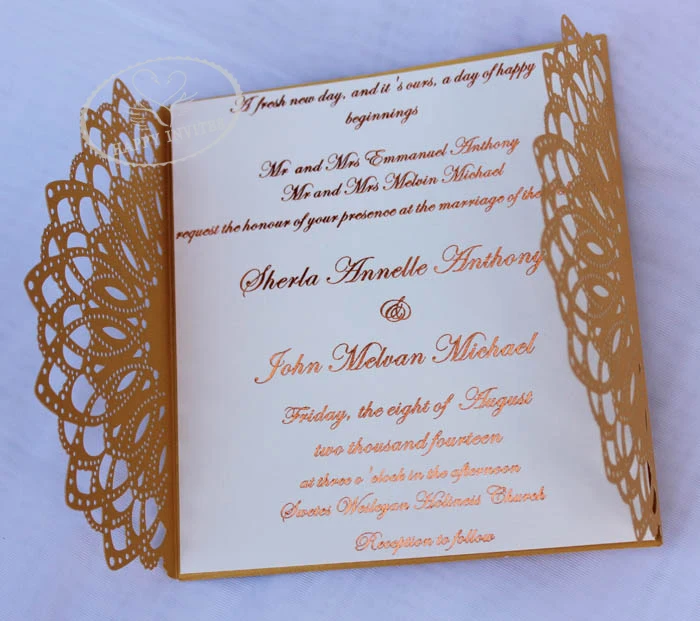 A fresh new day, and it's ours, a day of happy
beginnings
Mr and Mrs Emmanuel Anthony
Mr and Mrs Melvin Michael
request the honour of your presence at the marriage of the
Sherla Annelle Anthony
&
John Melvan Michael
Friday, the eight of August
two thousand fourteen
at three o'clock in the afternoon
Swetes Wesleyan Holiness Church
Reception to follow
HAPPY INVITES